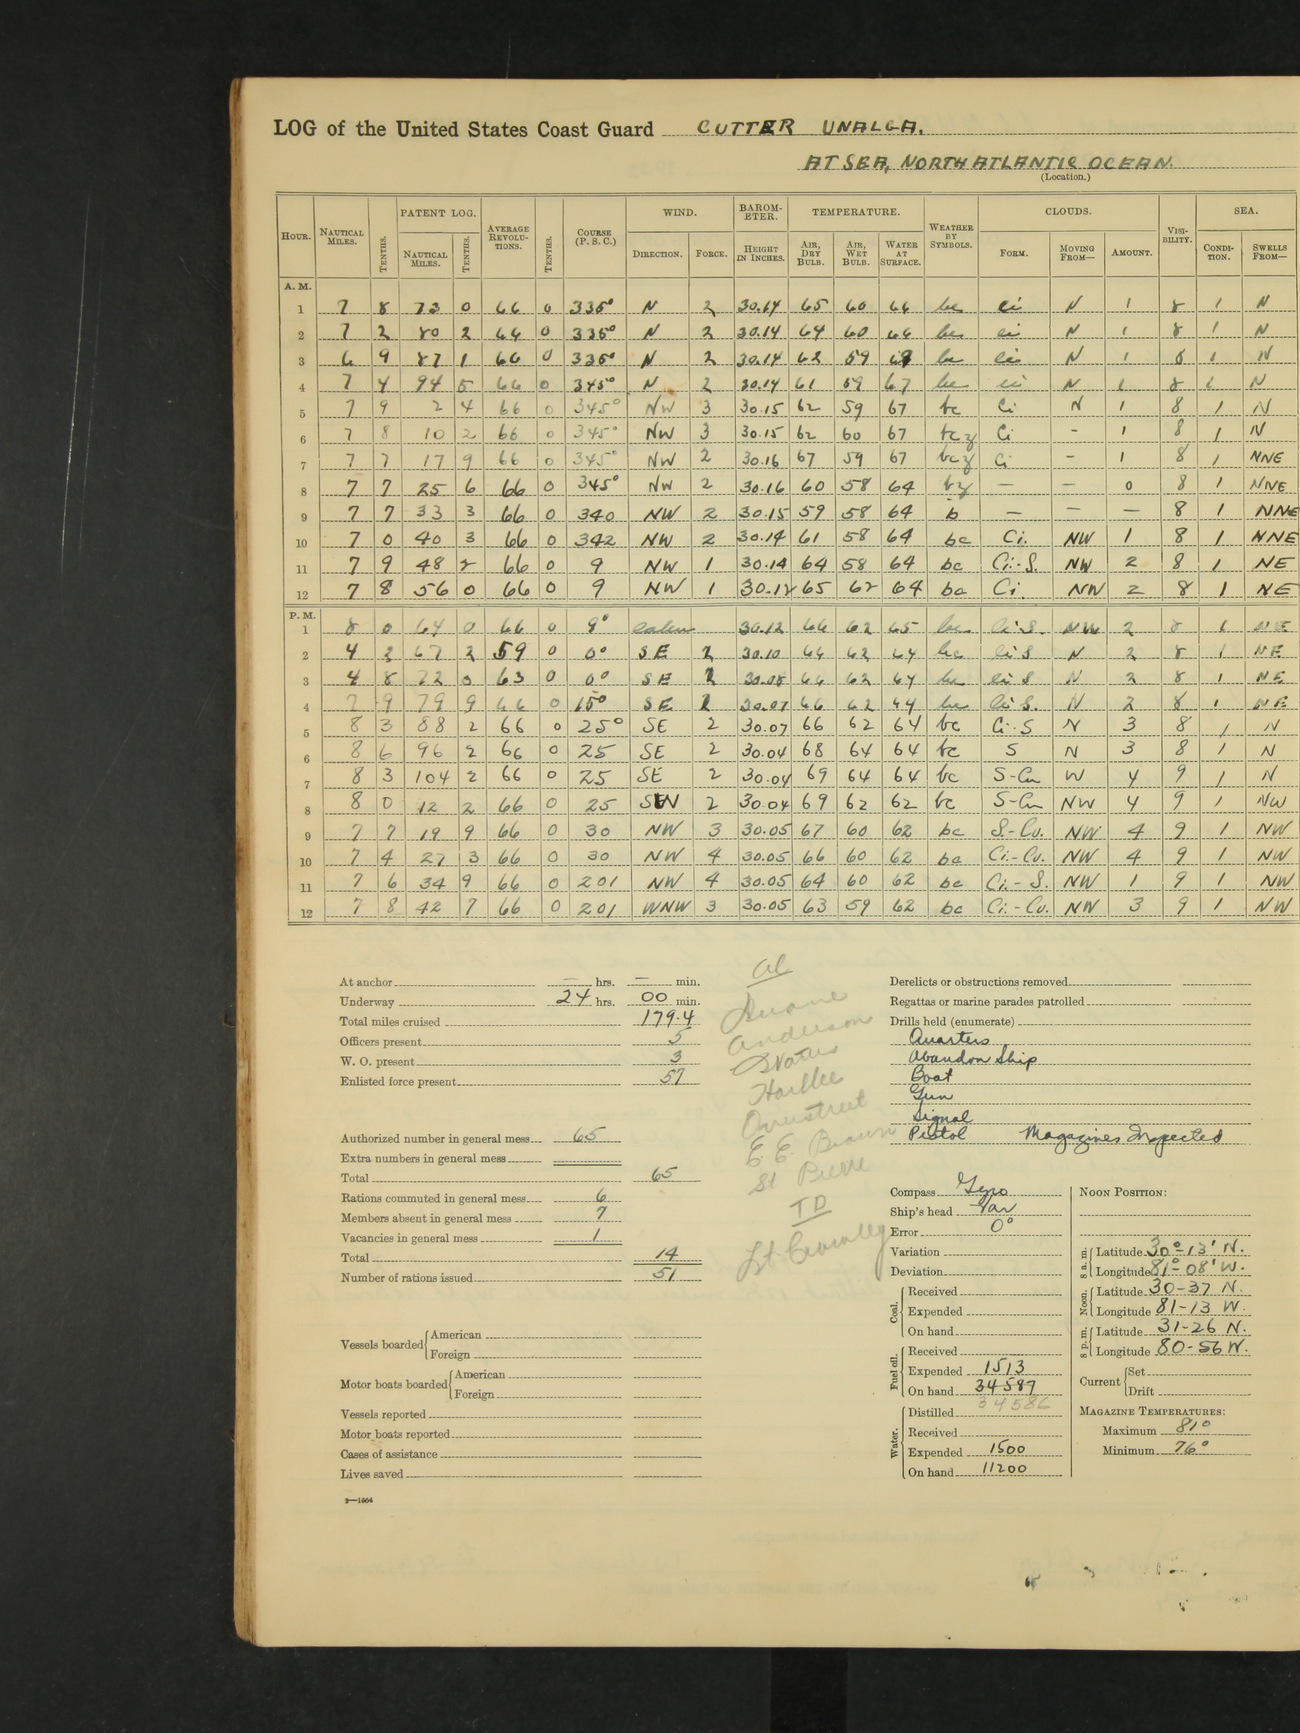 LOG of the United States Coast Guard CUTTER UNALGA.
AT SEA, NORTH ATLANTIC OCEAN.
(Location.)
HOUR. NAUTICAL MILES. TENTHS. PATENT LOG. NAUTICAL MILES. TENTHS. AVERAGE REVOLUTIONS. TENTHS. COURSE (P. S. C.) WIND. DIRECTION. FORCE. BAROMETER. HEIGHT IN INCHES. TEMPERATURE. AIR, DRY BULB. AIR, WET BULB. WATER AT SURFACE. WEATHER BY SYMBOLS. CLOUDS. FORM. MOVING FROM— AMOUNT. VISIBILITY. SEA. CONDITION. SWELLS FROM—
A. M.
1 7 8 73 0 66 0 335° N 2 30.14 65 60 66 bc ci N 1 8 1 N
2 7 2 80 2 66 0 335° N 2 30.14 64 60 66 bc ci N 1 8 1 N
3 6 9 87 1 66 0 335° N 2 30.14 62 59 bc ci N 1 8 1 N
4 7 4 94 5 66 0 345° N 2 30.14 61 59 67 bc ci N 1 8 1 N
5 7 9 2 4 66 0 345° NW 3 30.15 62 59 67 bc Ci N 1 8 1 N
6 7 8 10 2 66 0 345° NW 3 30.15 62 60 67 bcz Ci - 1 8 1 N
7 7 7 17 9 66 0 345° NW 2 30.16 67 59 67 bcz Ci - 1 8 1 NNE
8 7 7 25 6 66 0 345° NW 2 30.16 60 58 64 bz — — 0 8 1 NNE
9 7 7 33 3 66 0 340 NW 2 30.15 59 58 64 b — — — 8 1 NNE
10 7 0 40 3 66 0 342 NW 2 30.14 61 58 64 bc Ci. NW 1 8 1 NNE
11 7 9 48 2 66 0 9 NW 1 30.14 64 58 64 bc Ci.-S. NW 2 8 1 NE
12 7 8 56 0 66 0 9 NW 1 30.12 65 62 64 bc Ci. NW 2 8 1 NE
P. M.
1 8 0 64 0 66 0 9° calm 30.12 66 62 65 bc ci S. NW 2 8 1 NE
2 4 2 67 2 59 0 0° SE 2 30.10 66 62 64 bc ci S N 2 8 1 NE
3 4 8 72 0 63 0 0° SE 2 30.08 66 62 64 bc ci S. N 2 8 1 NE
4 7 9 79 9 66 0 15° SE 2 30.07 66 62 64 bc ci S. N 2 8 1 NE
5 8 3 88 2 66 0 25° SE 2 30.07 66 62 64 bc Ci-S N 3 8 1 N
6 8 6 96 2 66 0 25 SE 2 30.04 68 64 64 bc S N 3 8 1 N
7 8 3 104 2 66 0 25 SE 2 30.04 69 64 64 bc S-Cu W 4 9 1 N
8 8 0 12 2 66 0 25 SW 2 30.04 69 62 62 bc S-Cu NW 4 9 1 NW
9 7 7 19 9 66 0 30 NW 3 30.05 67 60 62 bc S.-Cu. NW 4 9 1 NW
10 7 4 27 3 66 0 30 NW 4 30.05 66 60 62 bc Ci.-Cu. NW 4 9 1 NW
11 7 6 34 9 66 0 201 NW 4 30.05 64 60 62 bc Ci.-S. NW 1 9 1 NW
12 7 8 42 7 66 0 201 WNW 3 30.05 63 59 62 bc Ci.-Cu. NW 3 9 1 NW
At anchor — hrs. — min.
Underway 24 hrs. 00 min.
Total miles cruised 179.4
Officers present 5
W. O. present 3
Enlisted force present 57
Authorized number in general mess 65
Extra numbers in general mess
Total 65
Rations commuted in general mess 6
Members absent in general mess 7
Vacancies in general mess 1
Total 14
Number of rations issued 51
Vessels boarded American
Foreign
Motor boats boarded American
Foreign
Vessels reported
Motor boats reported
Cases of assistance
Lives saved
2—1664
al
Duane
Anderson
Harllee
Overstreet
E. E. Braun
St Pierre
TD
Lt. Cromley
Derelicts or obstructions removed
Regattas or marine parades patrolled
Drills held (enumerate)
Quarters
Abandon Ship
Boat
Gun
Signal
Pistol Magazines Inspected
Compass Gyro
Ship's head Var
Error 0°
Variation
Deviation
Coal. Received
Expended
On hand
Fuel oil. Received
Expended 1513
On hand 34587
34586
Water. Distilled
Received
Expended 1500
On hand 11200
NOON POSITION:
8 a. m. Latitude 30°-13' N.
Longitude 81°-08' W.
Noon. Latitude 30-37 N.
Longitude 81-13 W.
8 p. m. Latitude 31-26 N.
Longitude 80-56 W.
Current Set
Drift
MAGAZINE TEMPERATURES:
Maximum 81°
Minimum 76°